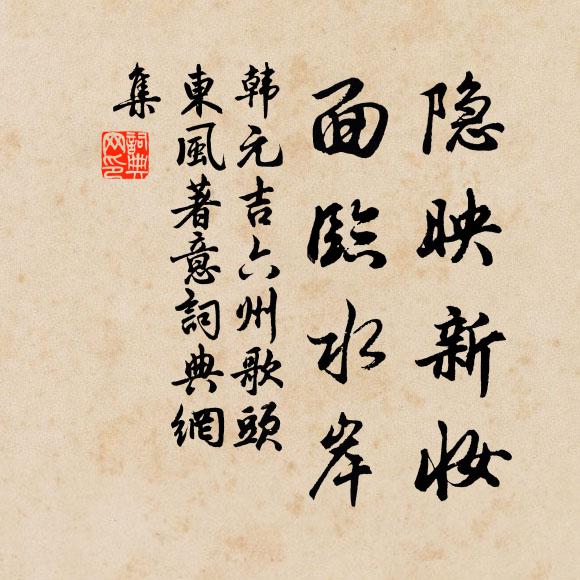 隐映新妆
面臨水岸
韩元吉六州歌頭
東風著意詞典網
集
詞典
网印